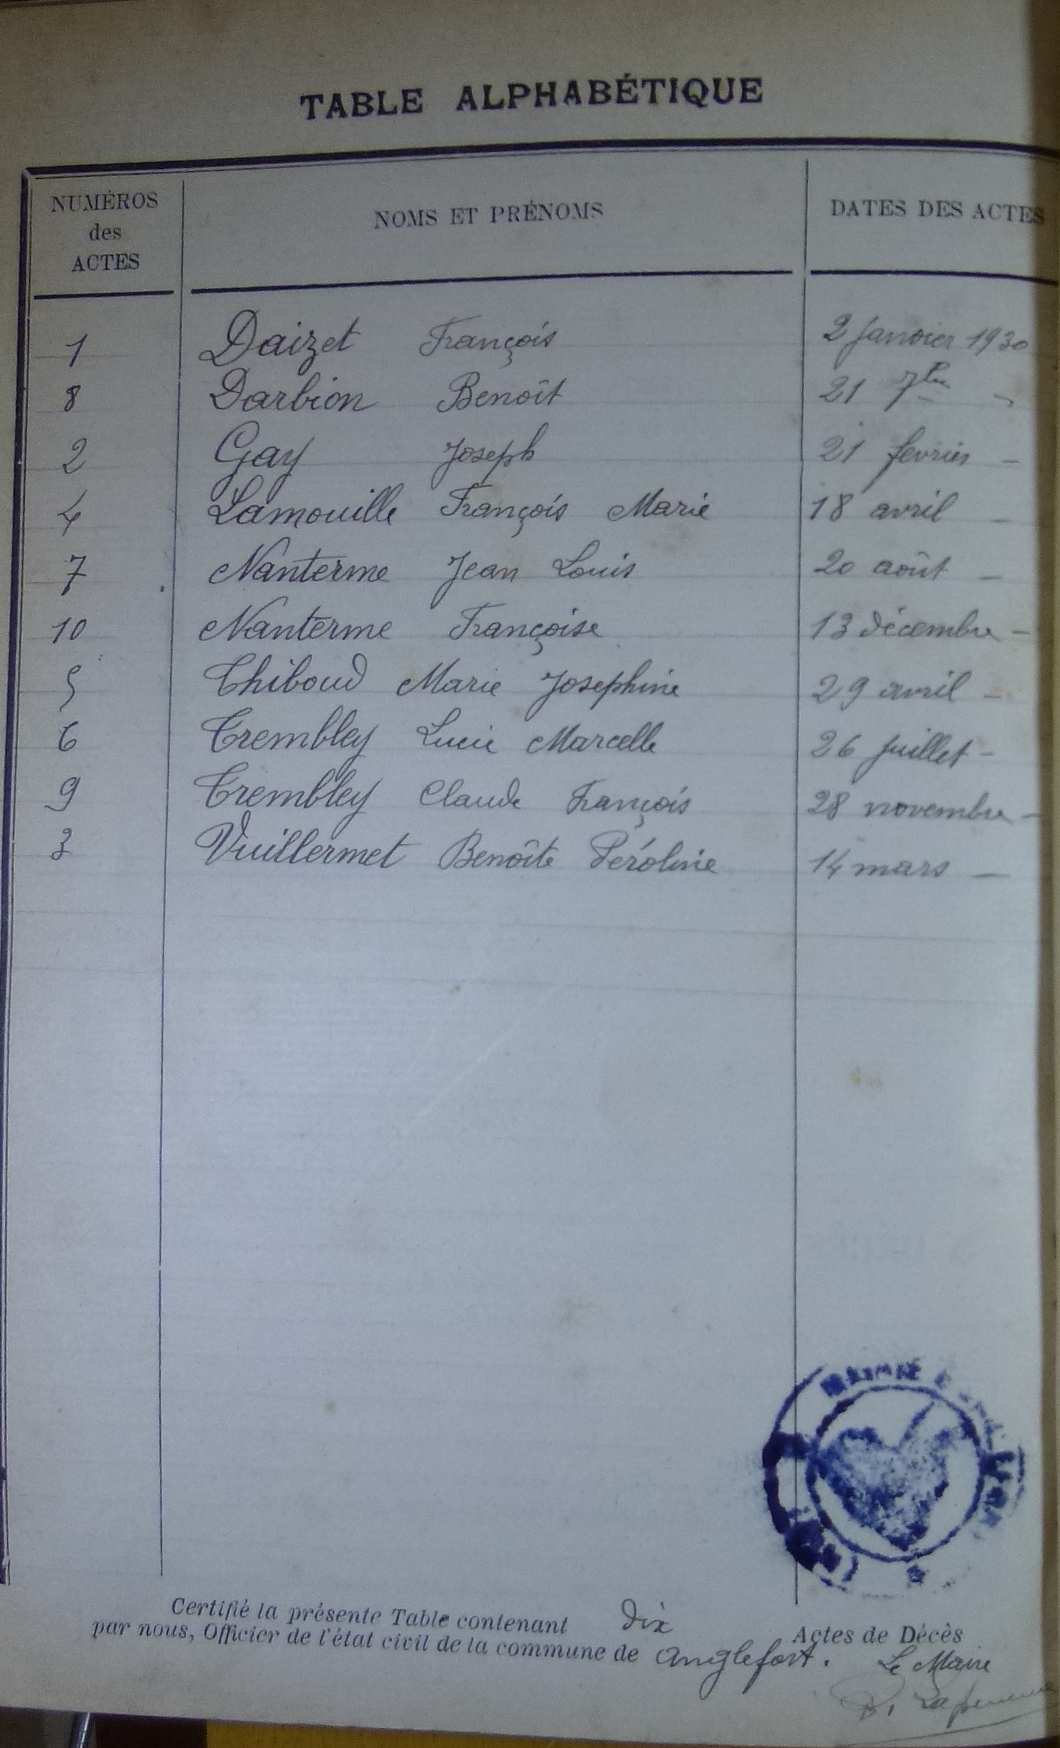 TABLE ALPHABÉTIQUE
NUMÉROS des ACTES NOMS ET PRÉNOMS DATES DES ACTES
1 Daizet François 2 Janvier 1930
8 Darbion Benoît 21 7bre -
2 Gay Joseph 21 fevrier -
4 Lamouille François Marie 18 avril -
7 Nanterme Jean Louis 20 août -
10 Nanterme Françoise 13 décembre -
5 Thiboud Marie Josephine 29 avril -
6 Trembley Lucie Marcelle 26 Juillet -
9 Trembley Claude François 28 novembre -
3 Vuillermet Benoîte Péroline 14 mars -
MAIRIE
Certifié la présente Table contenant dix Actes de Décès
par nous, Officier de l'état civil de la commune de Anglefort. Le Maire